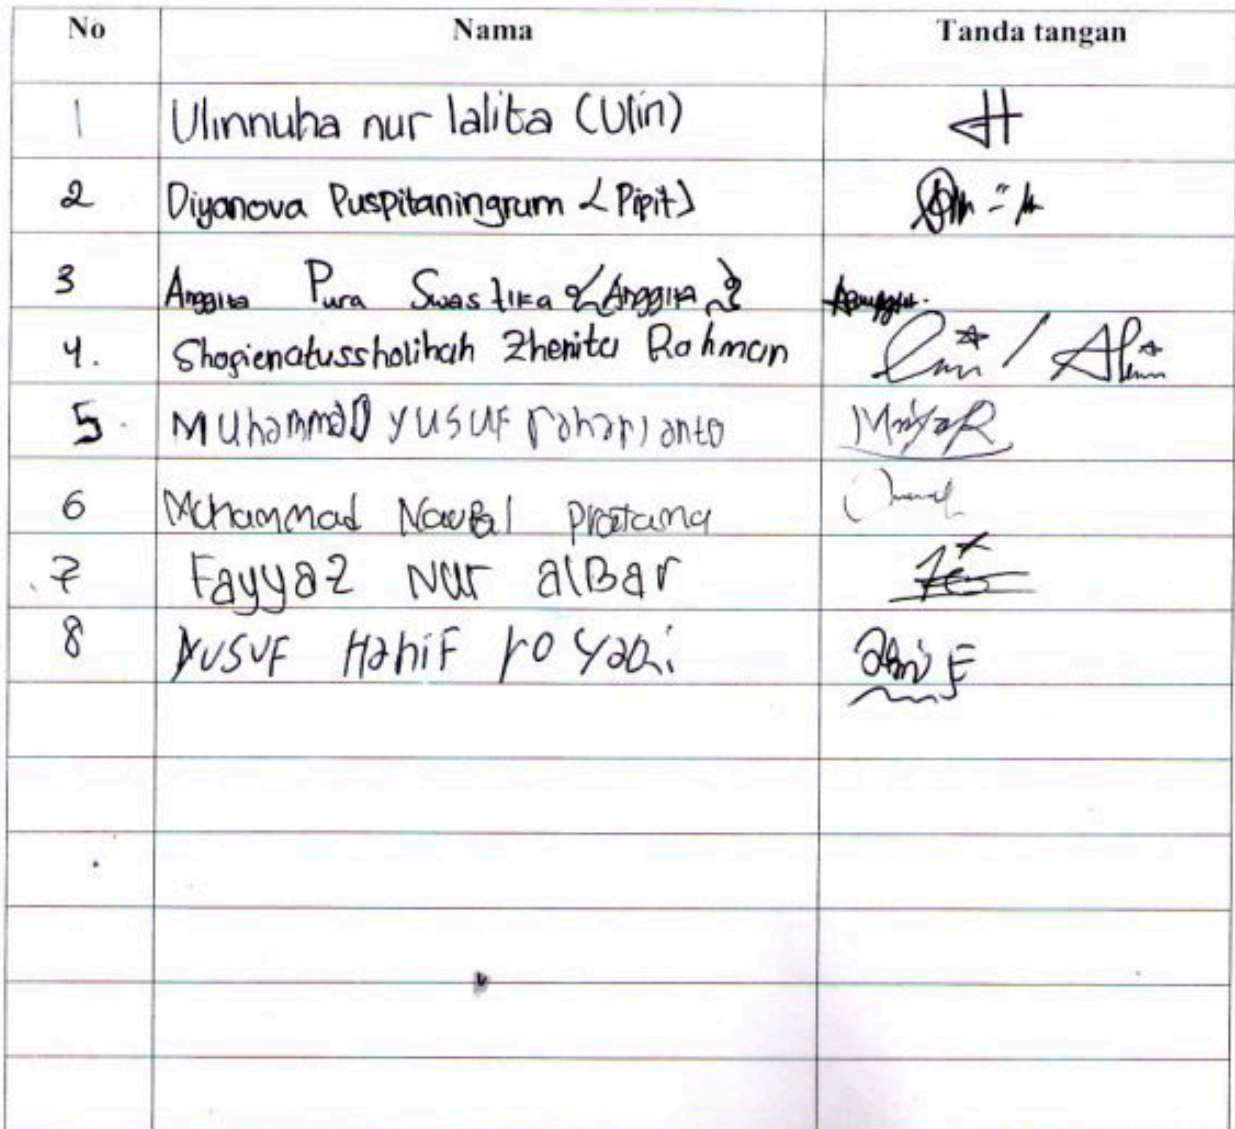 No Nama Tanda tangan
1 Ulinnuha nur lalita (Ulin)
2 Diyanova Puspitaningrum (Pipit)
3 Anggita Pura Swastika {Anggita}
4. Shofienatussholihah Zhenita Rahman
5. Muhammad yusuf raharjanto
6 Mohammad Naufal pratama
7 Fayyaz Nur alBar
8 yusuf Hanif royani